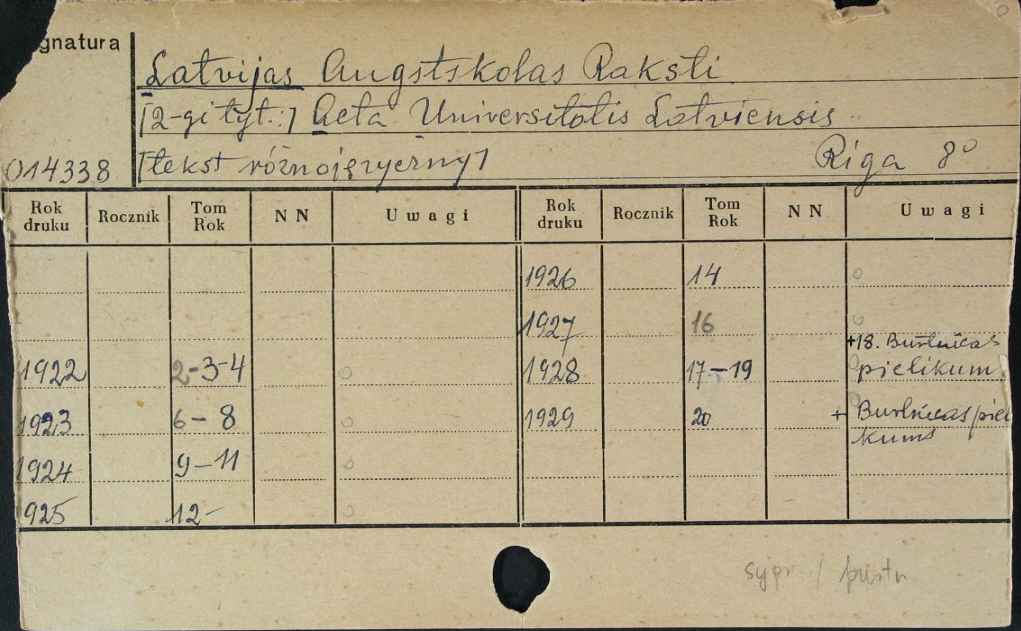 gnatura
Latvijas Augstskolas Raksti
[2-gi tyt.:] Acta Universitatis Latviensis
014338 [tekst różnojęzyczny] Riga 8°
Rok druku Rocznik Tom Rok NN Uwagi Rok druku Rocznik Tom Rok NN Uwagi
1926 14
1927 16
+18. Burtnicas
1922 2-3-4 1928 17-19 pielikum
1923 6-8 1929 20 + Burtnicas pieli
kums
1924 9-11
925 12-